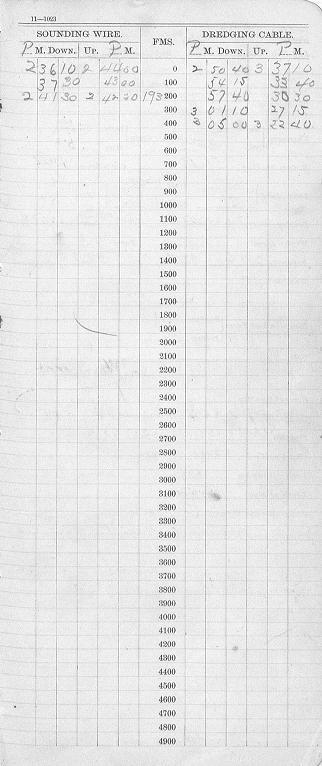 11—1023
SOUNDING WIRE. FMS. DREDGING CABLE.
P. M. Down. Up. P. M. P. M. Down. Up. P. M.
2 36 10 2 44 00 0 2 50 40 3 37 10
37 30 43 00 100 54 15 33 40
2 41 30 2 42 30 193 200 57 40 30 30
300 3 01 10 27 15
400 3 05 00 3 22 40
500
600
700
800
900
1000
1100
1200
1300
1400
1500
1600
1700
1800
1900
2000
2100
2200
2300
2400
2500
2600
2700
2800
2900
3000
3100
3200
3300
3400
3500
3600
3700
3800
3900
4000
4100
4200
4300
4400
4500
4600
4700
4800
4900